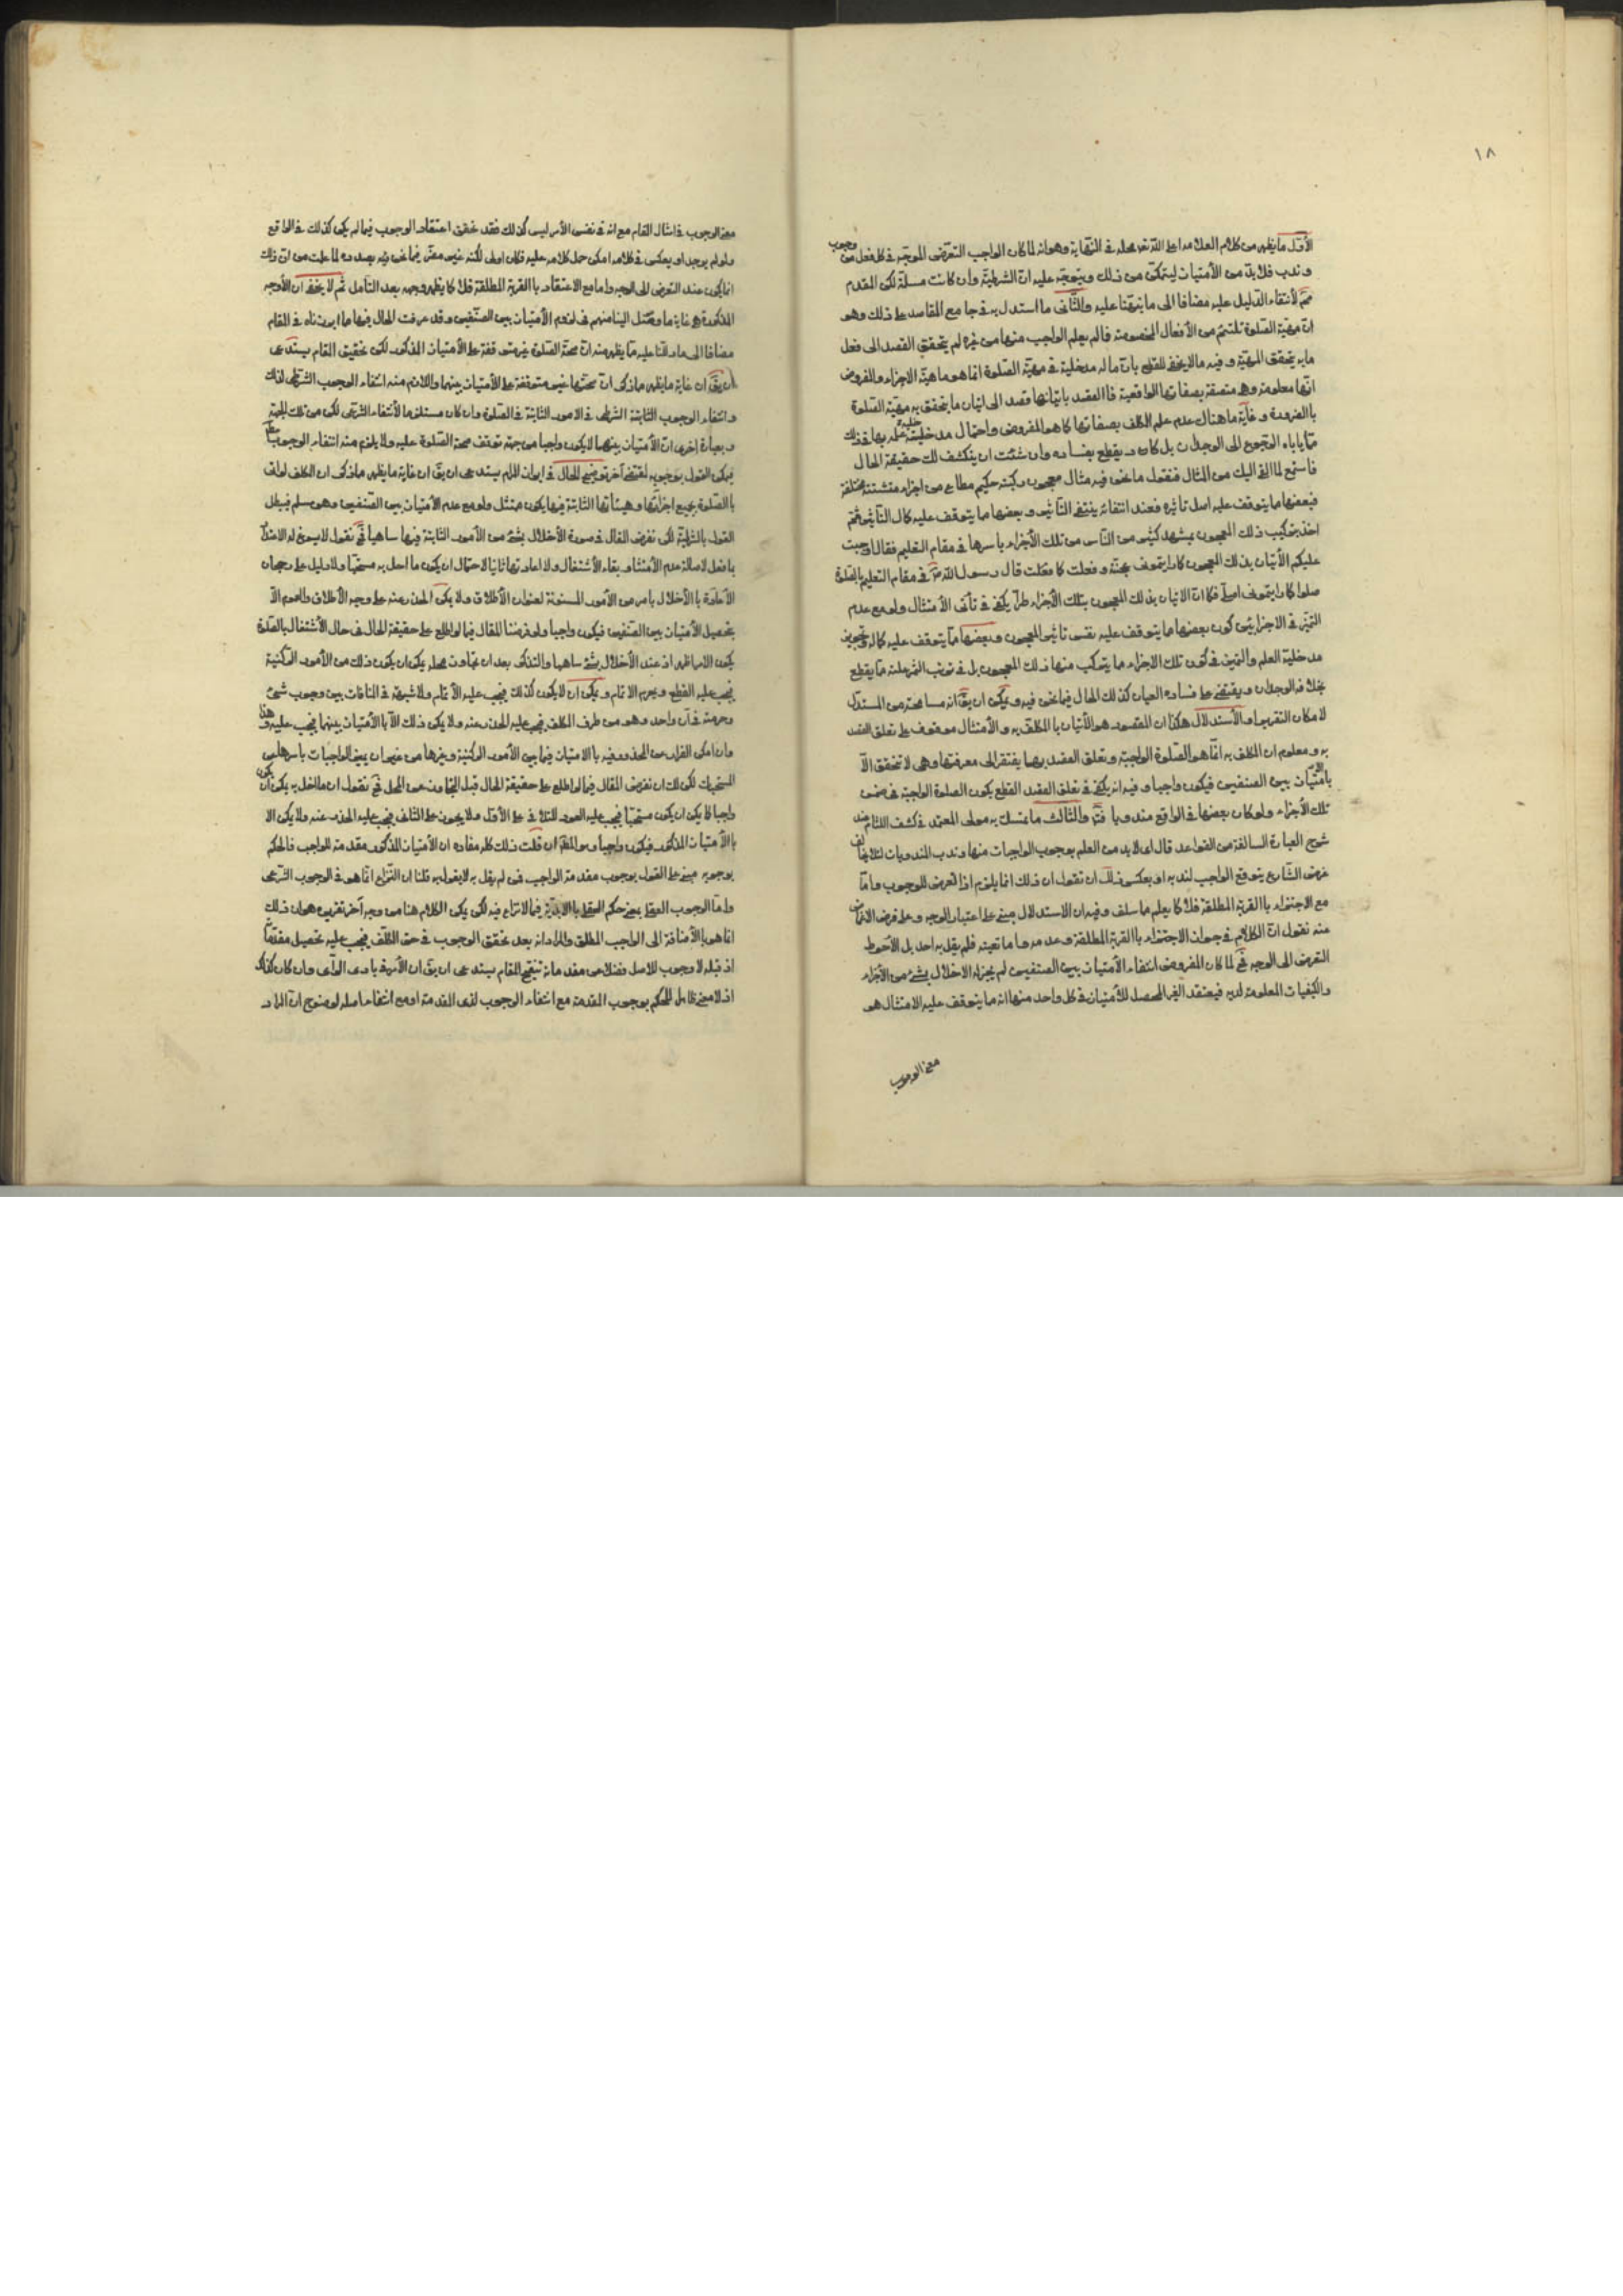 ١٨
الأوّل ما يظهر من كلام العلامة اعلى الله محله في النهاية وهو انه لما كان الواجب التعرض للوجه في كل فعل من وجوب
وندب فلا بد من الأمتياز ليتمكن من ذلك ويتوجه عليه ان الشرطية وان كانت مسلمة لكن المقدم
لأنتفاء الدليل عليه مضافا الى ما نبهنا عليه والثاني ما استدل به في جامع المقاصد على ذلك وهو
ان مهية الصلوة تلتئم من الأفعال المخصوصة فما لم يعلم الواجب منها من غيره لم يتحقق القصد الى فعل
ما به يتحقق المهية وفيه ما لا يخفى للقطع بان ما له مدخلية في مهية الصلوة انما هو ماهية الاجزاء والمفروض
انها معلومة وهي متصفة بصفاتها الواقعية فالقصد باتيانها قصد الى اتيان ما يتحقق به مهية الصلوة
بالضرورة وغاية ما هناك عدم علم المكلف بصفاتها كما هو المفروض واحتمال مدخلية علمه بها في ذلك
مما ياباه الرجوع الى الوجدان بل كاد يقطع بفساده وان شئت ان ينكشف لك حقيقة الحال
فاستمع لما القي اليك من المثال فنقول ما نحن فيه مثال معجون ركبته حكيم مطاع من اجزاء متشتتة مختلفة
فبعضها ما يتوقف عليه اصل تاثيره فعند انتفائه ينتفي التأثير وبعضها ما يتوقف عليه كمال التأثير ثم
اخذ بتركيب ذلك المعجون بمشهد كثير من الناس من تلك الأجزاء باسرها في مقام التعليم فقال اوجبت
عليكم الأتيان بذلك المعجون كما رايتموني عجنته وفعلت كما فعلت قال رسول الله في مقام التعليم بالصلوة
صلوا كما رايتموني اصلي فكما ان الاتيان بذلك المعجون بتلك الأجزاء طرا يكفي في تأتي الأمتثال ولو مع عدم
التميز في الاجزاء بين كون بعضها مما يتوقف عليه نفس تاثير المعجون وبعضها مما يتوقف عليه كماله وتجويز
مدخلية العلم والتميز في كون تلك الاجزاء مما يتركب منها ذلك المعجون بل في ترتب الثمر عليه مما يقطع
بخلافه الوجدان ويقضي على فساده العيان كذلك الحال فيما نحن فيه ويمكن ان يق انه مسامحة من المستدل
لامكان التقرير او الأستدلال هكذا ان المقصود هو الأتيان بالمكلف به والأمتثال موقوف على تعلق القصد
به ومعلوم ان المكلف به انما هو الصلوة الواجبة وتعلق القصد بها يفتقر الى معرفتها وهي لا تتحقق الا
بامتياز بين الصنفين فيكون واجبا وفيه انه يكفي في تعلق القصد القطع بكون الصلوة الواجبة في ضمن
تلك الأجزاء ولو كان بعضها في الواقع مندوبا والثالث ما تمسك به مولى المعتمد في كشف اللثام عند
شرح العبارة السالفة من القواعد قال اي لا بد من العلم بوجوب الواجبات منها وندب المندوبات لئلا يخالف
غرض الشارع بتوقع الواجب لندبه او بعكس ذلك ان نقول ان ذلك انما يلزم اذا تعرض للوجوب واما
مع الاجتزاء بالقربة المطلقة فلا كما يعلم مما سلف وفيه ان الاستدلال مبني على اعتبار الوجه وعلى فرض الاغماض
عنه نقول ان الكلام في جواز الاجتزاء بالقربة المطلقة وعدمه واما تعينه فلم يقل به احد بل الأحوط
التعرض الى الوجه لما كان المفروض انتفاء الأمتياز بين الصنفين لم يجز له الاخلال بشيء من الأجزاء
والكيفيات المعلومة لديه فيعتقد الغير المحصل للأمتياز في كل واحد منها انه مما يتوقف عليه الامتثال هو
معنى الوجوب
معنى الوجوب في امثال المقام مع انه في نفس الأمر ليس كذلك فقد تحقق اعتقاد الوجوب فيما لم يكن كذلك في الواقع
ولو لم يوجد او بعكس في كلامه امكن حمل كلامه عليه فكان اولى لكنه غير مضر فيما نحن فيه بصدده لما علمت من ان ذلك
انما يكون عند التعرض الى الوجه واما مع الاعتقاد بالقربة المطلقة فلا كما يظهر وجهه بعد التأمل ثم لا يخفى ان الأوجه
المذكورة هي غاية ما وصل الينا منهم في لزوم الأمتياز بين الصنفين وقد عرفت الحال فيها مما ابرزناه في المقام
مضافا الى ما دللنا عليه مما يظهر منه ان صحة الصلوة غير متوقفة على الأمتياز المذكور لكن تحقيق المقام يستدعي
ان يق ان غاية ما يظهر مما ذكر ان صحتها غير متوقفة على الأمتياز بينهما واللازم منه انتفاء الوجوب الشرطي لذلك
وانتفاء الوجوب الثابتة الشرطي في الامور الثابتة في الصلوة وان كان مستلزما لأنتفاء الشرعي لكن من تلك الجهة
وبعبارة اخرى ان الأمتياز بينهما لا يكون واجبا من جهة توقف صحة الصلوة عليه ولا يلزم منه انتفاء الوجوب
فيمكن القول بوجوبه لمقتض آخر وتنقيح الحال في ابراز المرام يستدعي ان يق ان غاية ما يظهر مما ذكر ان المكلف لو اتى
بالصلوة بجميع اجزائها وهيئاتها الثابتة فيها يكون ممتثل ولو مع عدم الأمتياز بين الصنفين وهو مسلم فيبطل
القول بالشرطية لكن نفرض المقال في صورة الأخلال بشيء من الأمور الثابتة فيها ساهيا نقول لا يسوغ له
بما فعل لاصالة عدم الأمتثال وبقاء الأشتغال ولا اعادتها ثانيا لاحتمال ان يكون ما اخل به مستحبا ولا دليل على رجحان
الأعادة بالأخلال بامر من الأمور المسنونة لعنوان الأطلاق ولا يمكن الحذر عنه على وجه الأطلاق والعموم الا
بتحصيل الأمتياز بين الصنفين فيكون واجبا ولو فرضنا المقال فيما لو اطلع على حقيقة الحال في حال الأشتغال بالصلوة
يكون الامر اظهر اذ عند الأخلال بشيء ساهيا والتذكر بعد ان تجاوز محله يمكن ان يكون ذلك من الأمور الركنية
فيجب عليه القطع ويحرم الاتمام ويمكن ان لا يكون كذلك فيجب عليه الأتمام ولا شبهة في المنافات بين وجوب شيء
وحرمته في آن واحد وهو من طرف المكلف فيجب عليه الحذر عنه ولا يمكن ذلك الا بالأمتياز بينهما فيجب عليه هذا
وان امكن الفرار من المحذور فيه بالامتياز فيما بين الأمور الركنية وغيرها من غير ان يميز الواجبات باسرها من
المستحبات لكن لك ان نفرض المقال فيما لو اطلع على حقيقة الحال قبل التجاوز عن المحل نقول ان ما اخل به يمكن ان يكون
واجبا كما يمكن ان يكون مستحبا فيجب عليه العود للتلافي على الأول ولا يجوز على الثاني فيجب عليه الحذر عنه ولا يمكن الا
بالأمتياز المذكور فيكون واجبا وهو المطلوب ان قلت ذلك كله مفاده ان الأمتياز المذكور مقدمة للواجب فالحكم
بوجوبه مبني على القول بوجوب مقدمة الواجب فمن لم يقل به لا يقول به قلنا ان النزاع انما هو في الوجوب الشرعي
واما الوجوب العقلي بمعنى حكم العقل باللابدية فيما لا نزاع فيه لكن يمكن الكلام هنا من وجه آخر تقريره هو ان ذلك
انما هو بالأضافة الى الواجب المطلق والمراد انه بعد تحقق الوجوب في حق المكلف فيجب عليه تحصيل مقدماته
اذ قبله لا وجوب للاصل فضلا عن مقدماته تنقيح المقام يستدعي ان يق ان الأمر في بادى الرأى وان كان كذلك
اذ لا معنى للحكم بوجوب المقدمة مع انتفاء الوجوب لذى المقدمة اومع انتفاء اصله لوضوح ان المراد